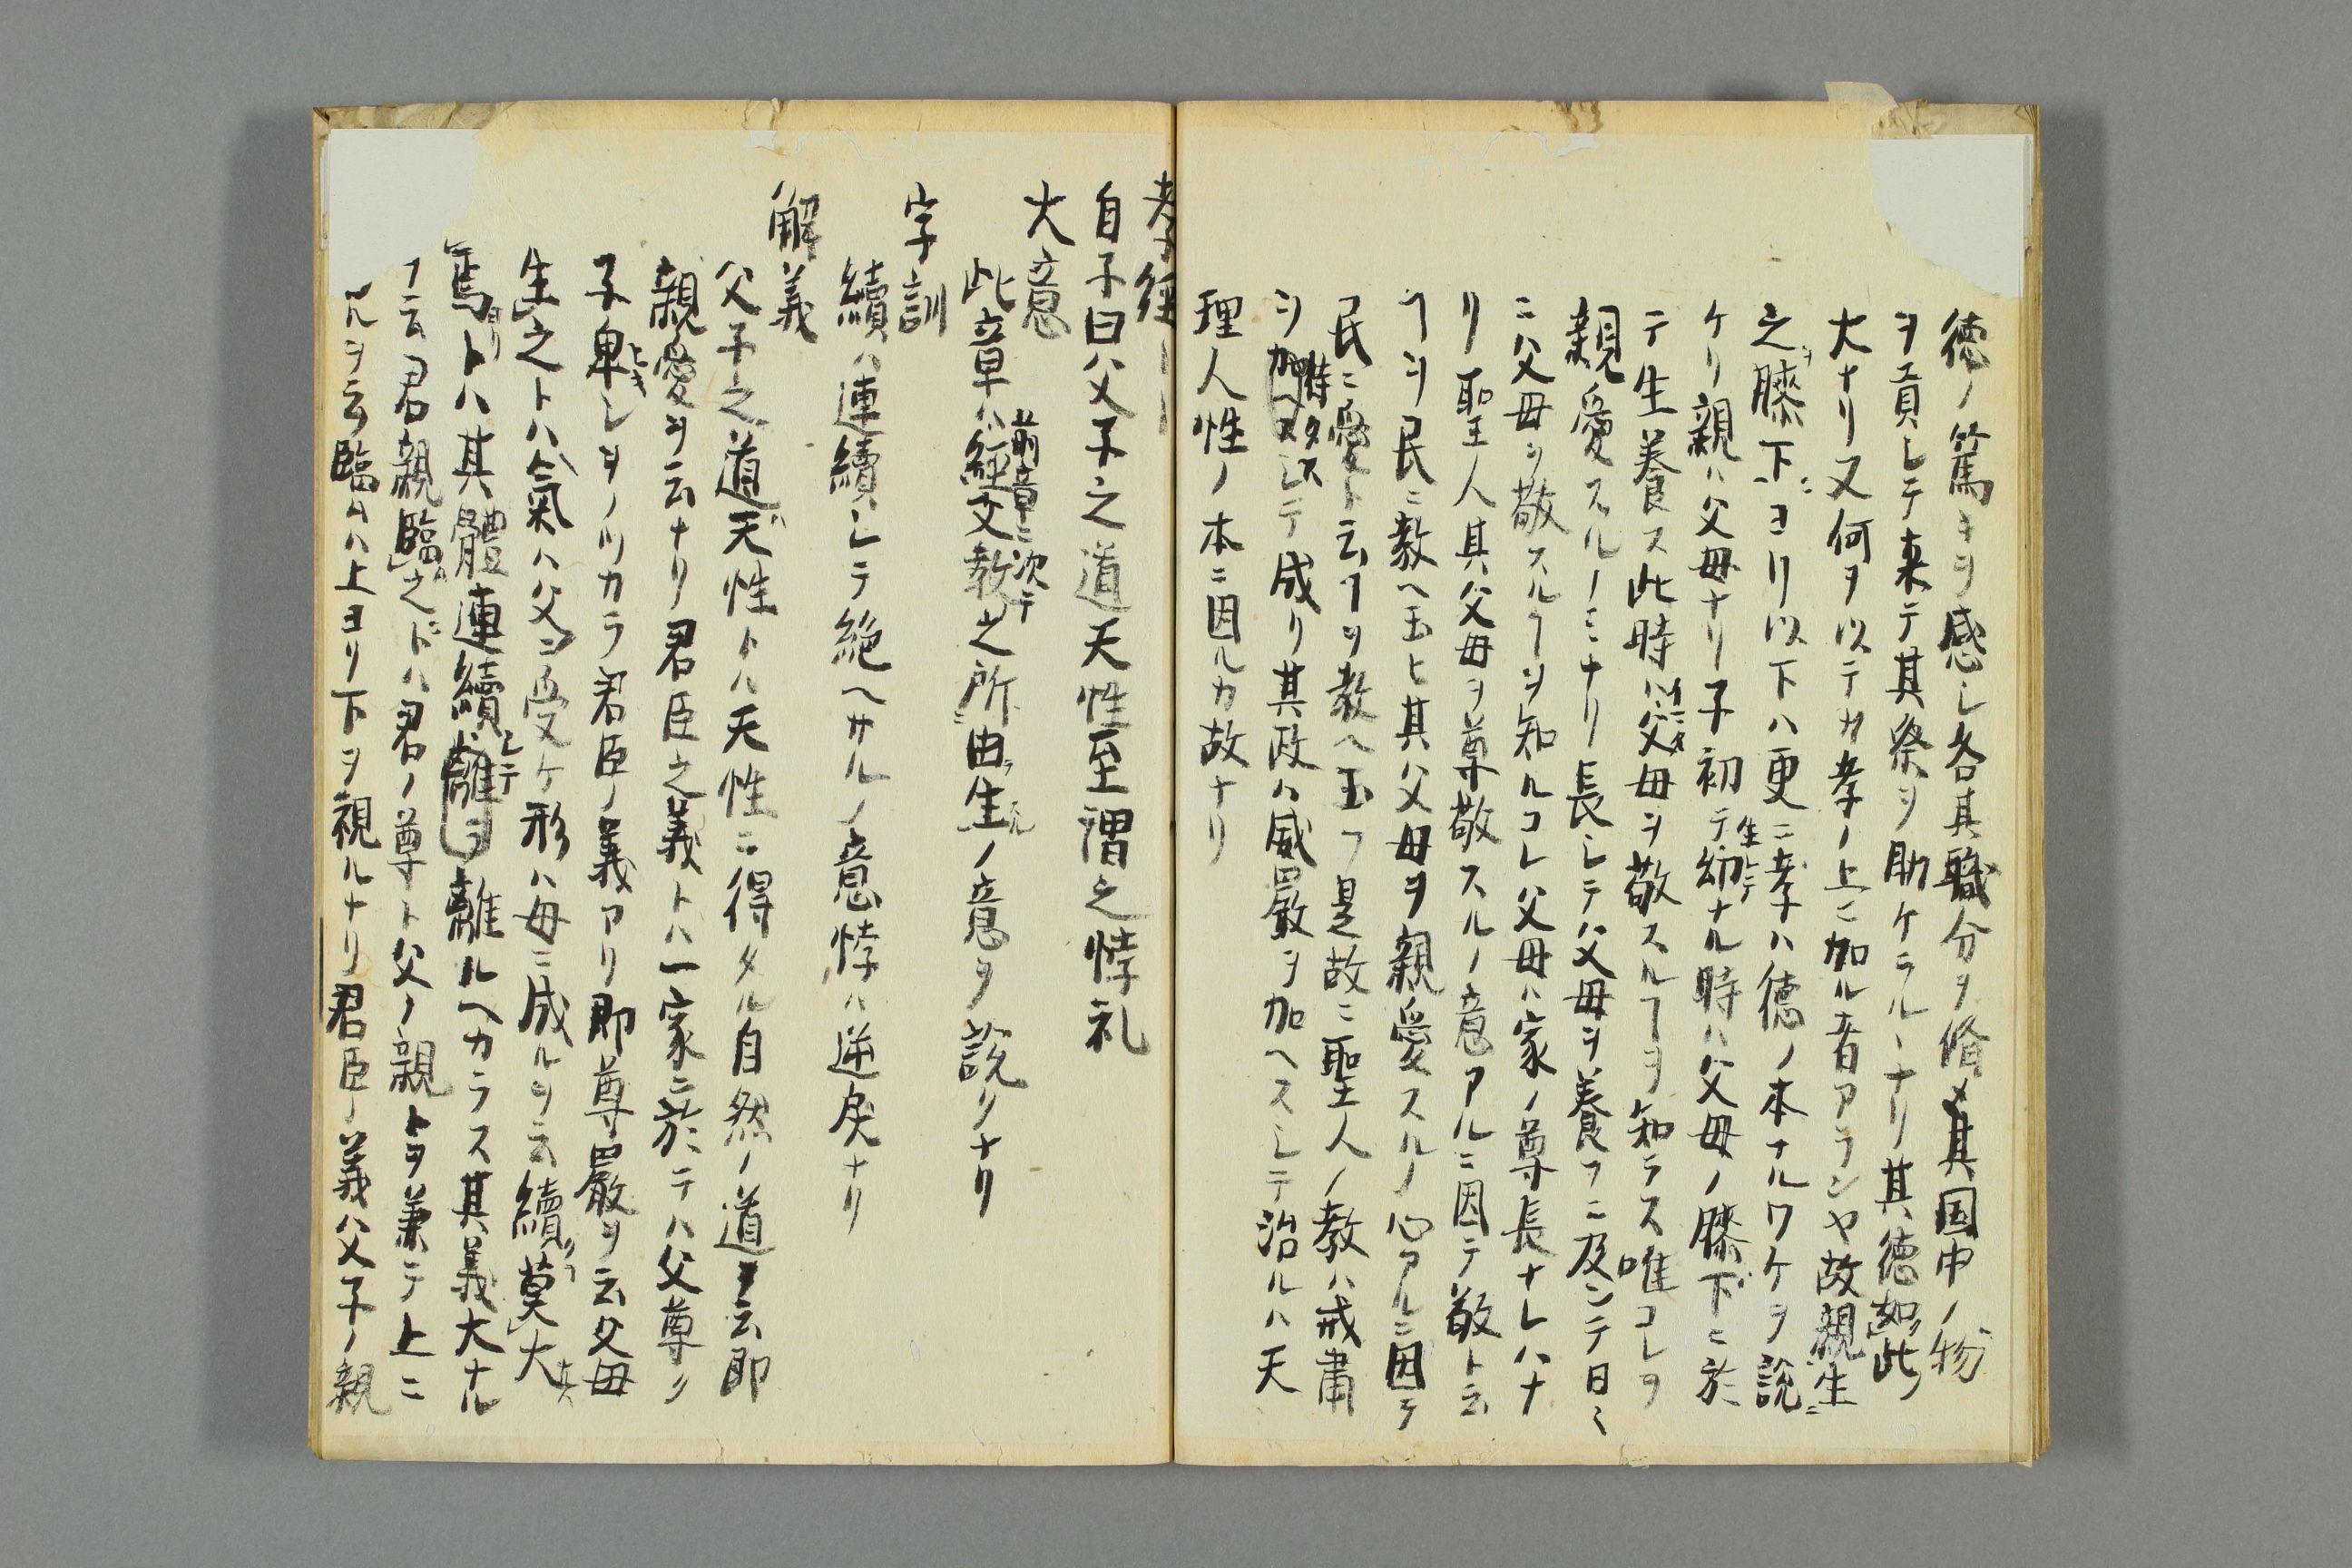 徳ノ篤キヲ感シ各其職分ヲ脩メ其国中ノ物
ヲ貢シテ来テ其祭ヲ助ケラルヽナリ其徳如此
大ナリ又何ヲ以テカ孝ノ上ニ加ル者アランヤ故親生
之膝下ヨリ以下ハ更ニ孝ハ徳ノ本ナルワケヲ説
ケリ親ハ父母ナリ子初テ生レテ幼ナル時ハ父母ノ膝下ニ於
テ生養ス此時ハイマタ父母ヲ敬スルヿヲ知ラス唯コレヲ
親愛スルノミナリ長シテ父母ヲ養フニ及ンテ日ミ
ニ父母ヲ敬スルヿヲ知ルコレ父母ハ家ノ尊長ナレハナ
リ聖人其父母ヲ尊敬スルノ意アルニ因テ敬ト云
ヿヲ民ニ教ヘ玉ヒ其父母ヲ親愛スルノ心アルニ因テ
民ニ愛ト云ヿヲ教ヘ玉フ是故ニ聖人ノ教ハ戒肅
ヲ加ヘスシテ成リ其政ハ威嚴ヲ加ヘスシテ治ルハ天
理人性ノ本ニ因ルカ故ナリ
孝経
自子曰父子之道天性至謂之悖礼
大意
此章ハ前章ニ次テ經文教之所由生ノ意ヲ説クナリ
字訓
續ハ連續シテ絶ヘサルノ意悖ハ逆戻ナリ
解義
父子之道天性トハ天性ニ得タル自然ノ道ヲ云即
親愛ヲ云ナリ君臣之義トハ一家ニ於テハ父尊ク
子卑シヲノツカラ君臣ノ義アリ即尊嚴ヲ云父母
生之トハ氣ハ父ヨリ受ケ形ハ母ニ成ルヲ云續莫大
焉トハ其體連續シテ離ルヘカラス其義大ナル
ヿ云君親臨之トハ君ノ尊ト父ノ親トヲ兼テ上ニ
ルヲ云臨ムハ上ヨリ下ヲ視ルナリ君臣ノ義ハ父子ノ親